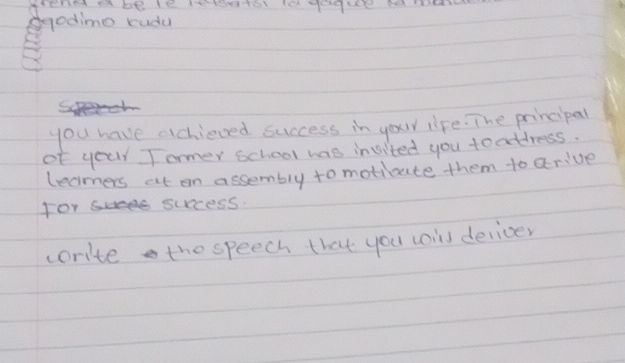 be le
godimo kudu
Speech
you have achieved success in your life. The principal
of your Former school has invited you to address.
learners at an assembly to motivate them to strive
For succes success.
write the speech that you will deliver